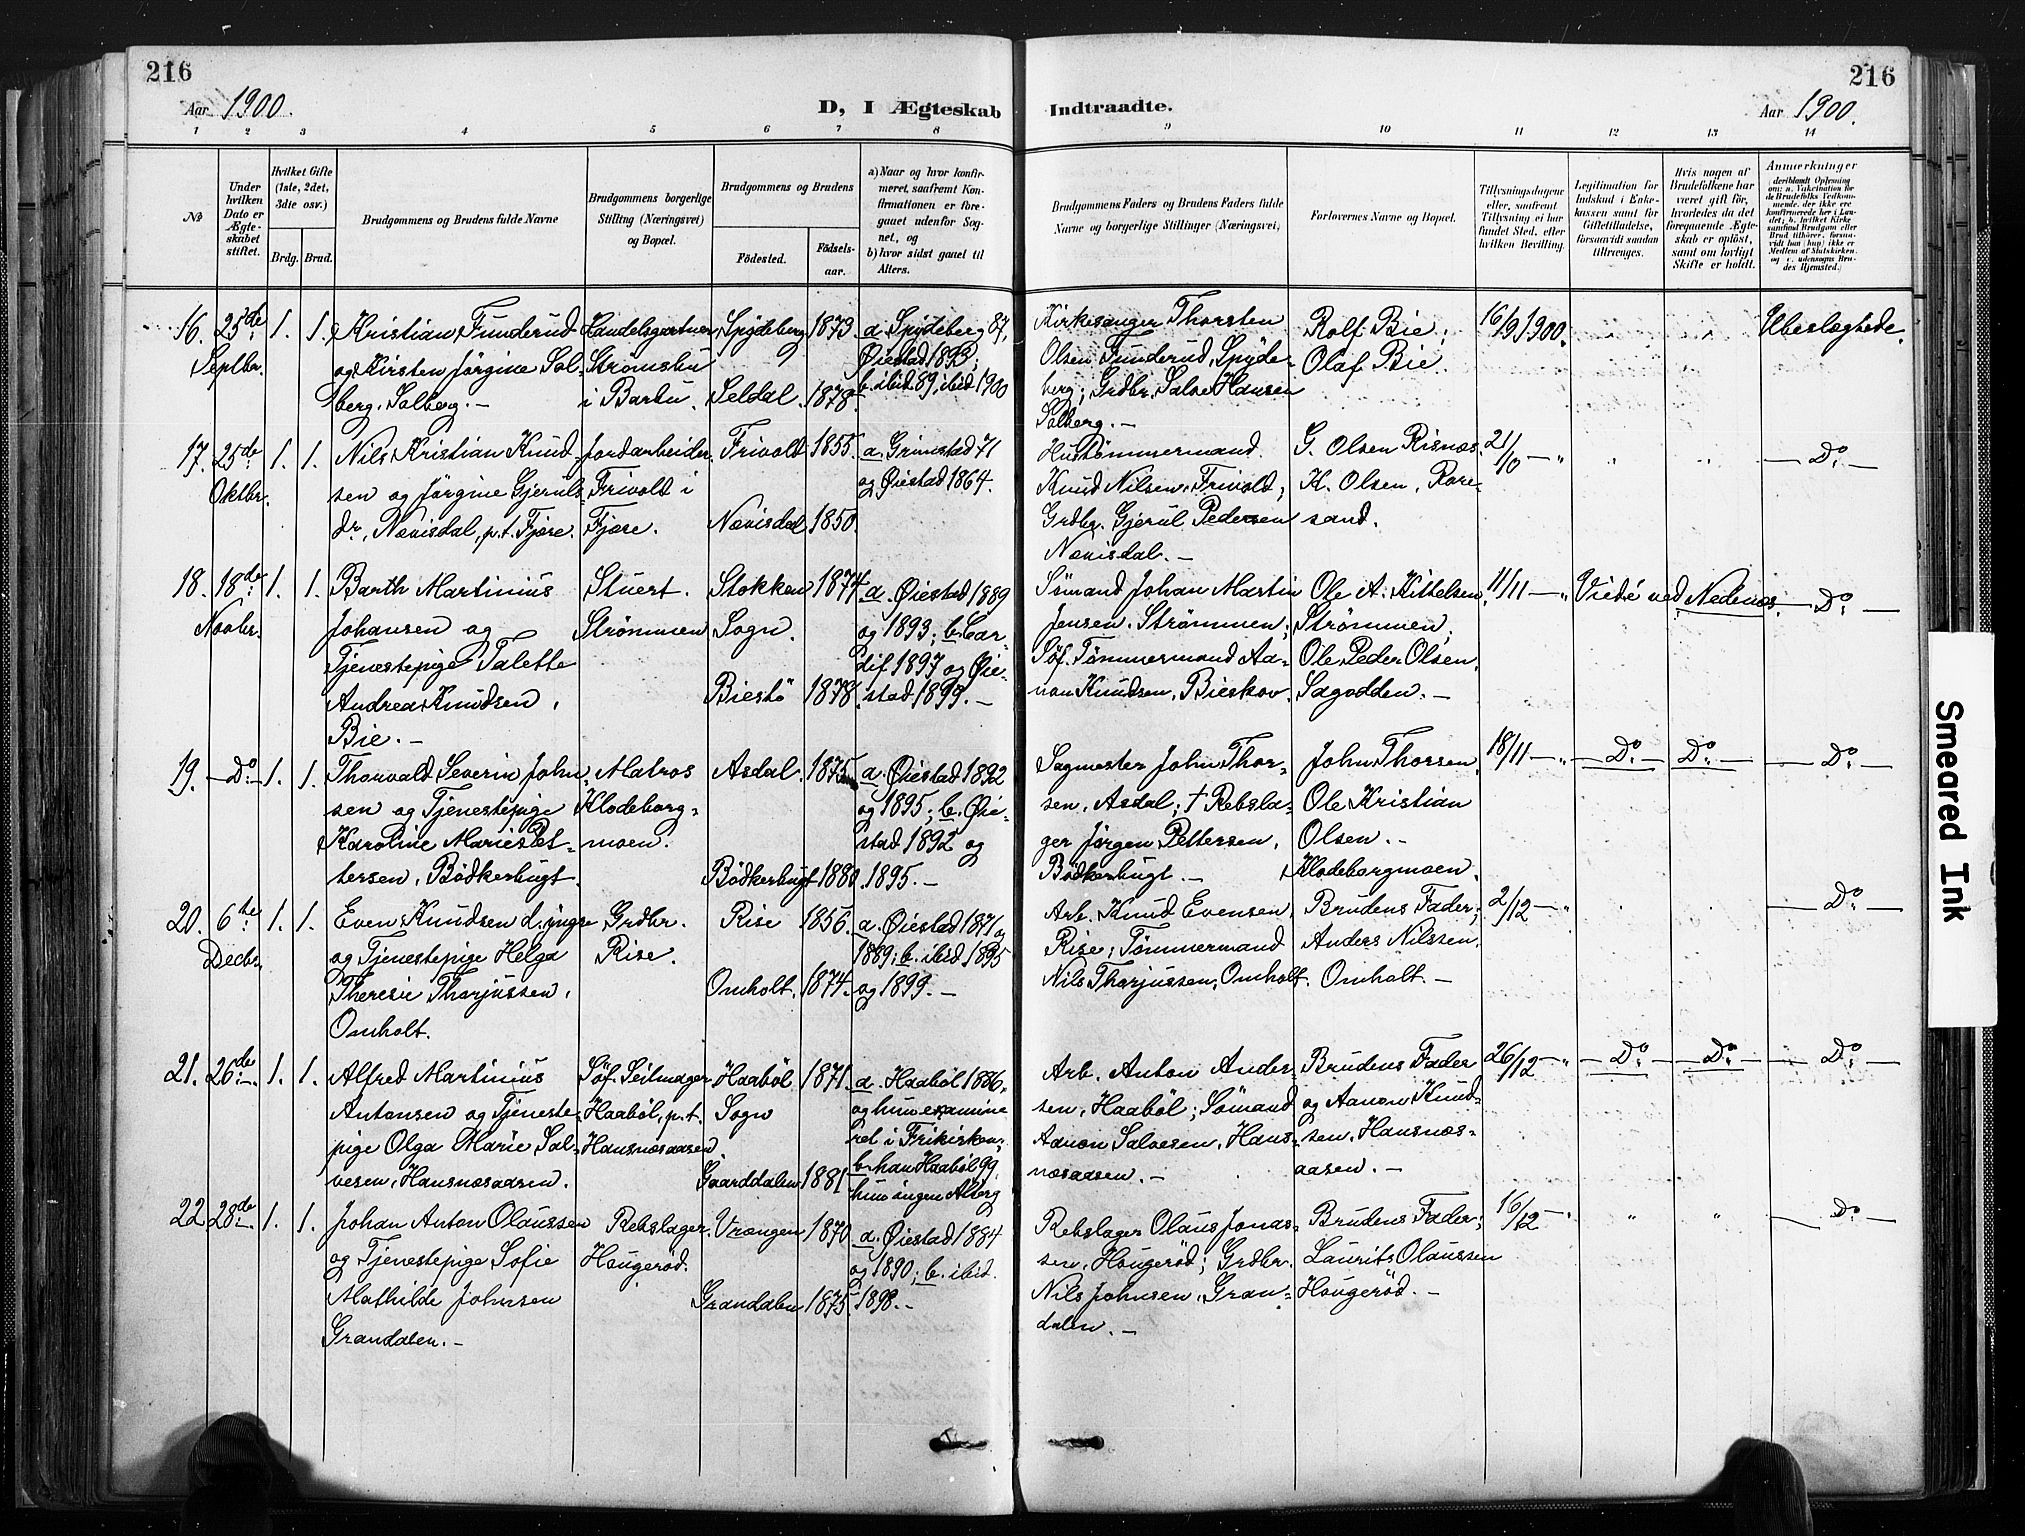 216
Aar 1900.
D, I Ægteskab
1 2 3 4 5 6 7 8
№
Under hvilken Dato er Ægteskabet stiftet.
Hvilket Gifte (1ste, 2det, 3die osv.)
Brdg. Brud.
Brudgommens og Brudens fulde Navne
Brudgommens borgerlige Stilling (Næringsvei) og Bopæl.
Brudgommens og Brudens
Fødested.
Fødselsaar.
a) Naar og hvor konfirmeret, saafremt Konfirmationen er foregaaet udenfor Sognet, og
b) hvor sidst gaaet til Alters.
16. 25de 1. 1. Kristian Funderud Handelsgartner, Spydeberg 1873 a. Spydeberg 87,
Septbr. og Kirsten Jørgine Sol- Strømsbu Øiestad 1893;
berg, Solberg. — i Barbu. Seldal. 1878. b. ibid 89, ibid 1900
17. 25de 1. 1. Nils Kristian Knud- Jordarbeider. Frivold 1855. a. Grimstad 71
Oktbr. sen og Jørgine Gjeruls- Frivold i og Øiestad 1864.
dr, Nævisdal, p.t. Fjære. Fjære. Nævisdal 1850.
18. 18de 1. 1. Barth Martinius Stuert. Stokken 1874 a. Øiestad 1889
Novbr. Johansen og Strømmen Sogn. og 1893; b. Car-
Tjenestepige Talette dif 1897 og Øie-
Andrea Knudsen, Biestø 1878. stad 1899. —
Bie. —
19. — Do — 1. 1. Thorvald Severin John- Matros Asdal. 1875 a. Øiestad 1892
sen og Tjenestepige Klodeborg- og 1895; b. Øie-
Karoline Marie Pet- moen. stad 1892 og
tersen, Bödkerbugt. Bödkerbugt 1880. 1895. —
20. 6te 1. 1. Even Knudsen d. yngre Grdbr. Rise 1856. a. Øiestad 1871 og
Decbr. og Tjenestepige Helga Rise. 1889; b. ibid 1895
Theresie Thorjussen, Omholt. 1874. og 1899. —
Omholt.
21. 26de 1. 1. Alfred Martinius Söf. Seilmager Haaböl 1871. a. Haaböl 1886.
Antonsen og Tjeneste- Haaböl, p.t. Sogn og hun examine
pige Olga Marie Sal- Hausnæsaasen. ret i Frikirken;
vesen, Hausnæsaasen. Gaarddalen 1881 b. han Haaböl 99,
hun ingen Alterg
22 28de 1. 1. Johan Anton Olaussen Rebslager. Vrængen 1870 a. Øiestad 1884
og Tjenestepige Sofie Haugeröd. og 1890; b. ibid.
Mathilde Johnsen Grandalen 1875. 1898. —
Grandalen. —
216
Indtraadte.
Aar 1900.
9 10 11 12 13 14
Brudgommens Faders og Brudens Faders fulde Navne og borgerlige Stillinger (Næringsvei)
Forlovernes Navne og Bopæl.
Tillysningsdagene eller, saafremt Tillysning ei har fundet Sted, efter hvilken Bevilling.
Legitimation for Indskud i Enkekassen samt for Giftetilladelse, forsaavidt saadan tiltrænges.
Hvis nogen af Brudefolkene har været gift før, hvorledes da det foregaaende Ægteskab er opløst, samt om lovligt Skifte er holdt.
Anmærkninger
(deriblandt Oplysning om: a. Vakcination for de Brudefolks Vedkommende, der ikke ere konfirmerede her i Landet; b. hvilket Kirkesamfund Brudgom eller Brud tilhører, forsaavidt han (hun) ikke er Medlem af Statskirken, og c. udensogns Brudes Hjemsted.)
Kirkesanger Thorsten Rolf Bie; 16/9 1900. " " Ubeslægtede.
Olsen Funderud, Spyde- Olaf Bie.
berg; Grdbr. Salve Hansen
Solberg. —
Hustömmermand. G. Olsen Risnæs. 21/10 — " " " — Do —
Knud Nilsen, Frivold; H. Olsen, Rore-
Grdbr. Gjerul Pedersen sand.
Nævisdal. —
Sömand Johan Martin Ole A. Kittelsen, 11/11 — " Vide ved Nedenæs. — Do —
Jensen. Strømmen; Strømmen;
Söf. Tömmermand Aa- Ole Peder Olsen,
non Knudsen, Bieskov. Sagodden. —
Sagmester John Thor- John Thorsen, 18/11 — " — Do — — Do — — Do —
sen, Asdal; † Rebsla- Ole Kristian
ger Jørgen Pettersen, Olsen. —
Bödkerbugt. — Klodeborgmoen.
Arb. Knud Evensen, Brudens Fader; 2/12 — " " " — Do —
Rise; Tömmermand Anders Nilssen.
Nils Thorjussen, Omholt. Omholt. —
Arb. Anton Ander- Brudens Fader 26/12 — " — Do — — Do — — Do —
sen, Haaböl; Sömand og Aanon Knud-
Aanon Salvesen, Haus- sen, Hausnæs-
næsaasen. — aasen. —
Rebslager Olaus Jonas- Brudens Fader; 16/12 — " " " — Do —
sen, Haugeröd; Grdbr. Laurits Olaussen
Nils Johnsen, Gran- Haugeröd. —
dalen. —
Smeared Ink